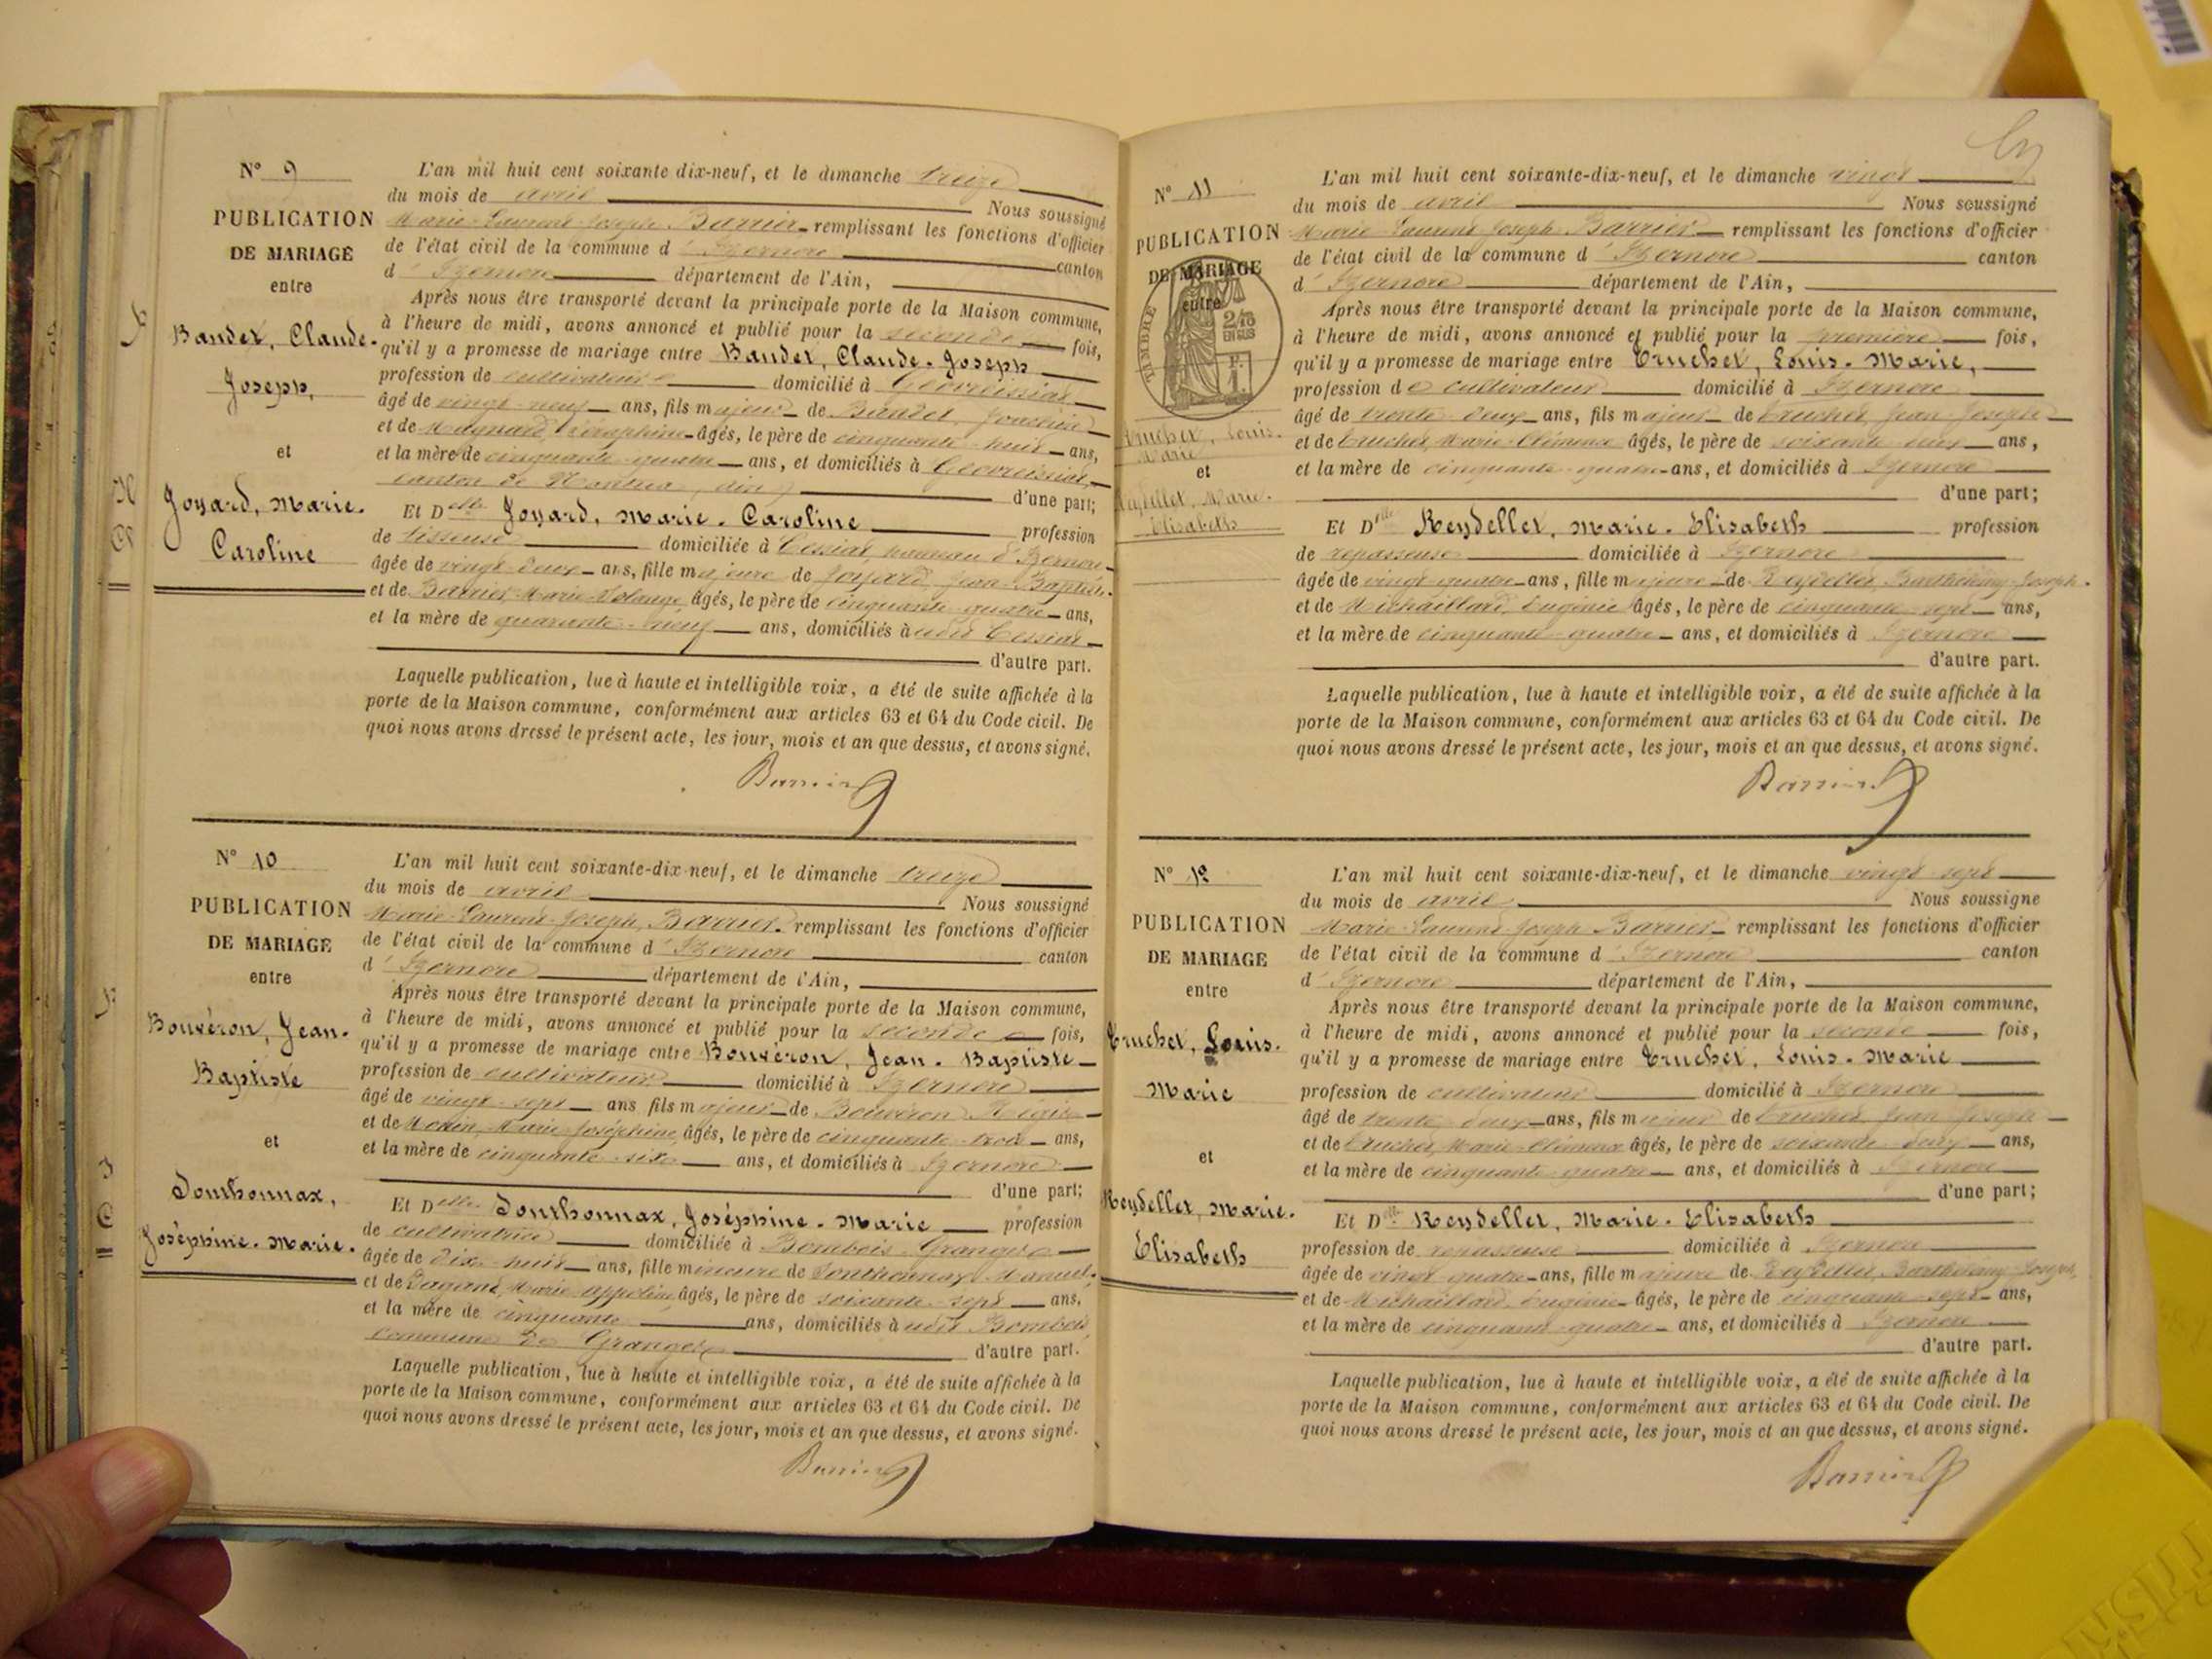 N° 9
PUBLICATION
DE MARIAGE
entre
Baudet, Claude-
Joseph,
et
Joyard, Marie-
Caroline
L'an mil huit cent soixante dix-neuf, et le dimanche treize
du mois de avril Nous soussigné
Marie-Laurent-Joseph Barrier remplissant les fonctions d'officier
de l'état civil de la commune d'Izernore canton
d'Izernore département de l'Ain,
Après nous être transporté devant la principale porte de la Maison commune,
à l'heure de midi, avons annoncé et publié pour la seconde fois,
qu'il y a promesse de mariage entre Baudet, Claude-Joseph
profession de cultivateur domicilié à Géovreissiat
âgé de vingt-neuf ans, fils majeur de Baudet,
et de Maynard, Séraphine âgés, le père de cinquante-huit ans,
et la mère de cinquante-quatre ans, et domiciliés à Géovreissiat,
canton de Nantua, d'une part;
Et Delle Joyard, Marie-Caroline profession
de tisseuse domiciliée à Cessiat, hameau d'Izernore
âgée de vingt-deux ans, fille majeure de Joyard, Jean-Baptiste
et de Barrier, Marie-Solange, âgés, le père de cinquante-quatre ans,
et la mère de quarante-neuf ans, domiciliés à udit Cessiat
d'autre part.
Laquelle publication, lue à haute et intelligible voix, a été de suite affichée à la
porte de la Maison commune, conformément aux articles 63 et 64 du Code civil. De
quoi nous avons dressé le présent acte, les jour, mois et an que dessus, et avons signé.
Barrier
N° 10
PUBLICATION
DE MARIAGE
entre
Bouvéron, Jean-
Baptiste
et
Donthonnax,
Joséphine-Marie.
L'an mil huit cent soixante-dix neuf, et le dimanche treize
du mois de avril Nous soussigné
Marie-Laurent-Joseph Barrier remplissant les fonctions d'officier
de l'état civil de la commune d'Izernore canton
d'Izernore département de l'Ain,
Après nous être transporté devant la principale porte de la Maison commune,
à l'heure de midi, avons annoncé et publié pour la seconde fois,
qu'il y a promesse de mariage entre Bouvéron, Jean-Baptiste
profession de cultivateur domicilié à Izernore
âgé de vingt-sept ans fils majeur de Bouvéron Régis
et de Marie-Joséphine, âgés, le père de cinquante-trois ans,
et la mère de cinquante-six ans, et domiciliés à Izernore
d'une part;
Et Delle Donthonnax, Joséphine-Marie profession
de cultivatrice domiciliée à Bombois-Granges
âgée de dix-huit ans, fille mineure de Donthonnax Manuel
et de Marie-Appoline âgés, le père de soixante-sept ans,
et la mère de cinquante ans, domiciliés à udit Bombois
commune de Granges d'autre part.
Laquelle publication, lue à haute et intelligible voix, a été de suite affichée à la
porte de la Maison commune, conformément aux articles 63 et 64 du Code civil. De
quoi nous avons dressé le présent acte, les jour, mois et an que dessus, et avons signé.
Barrier
N° 11
PUBLICATION
DE MARIAGE
entre
TIMBRE
Truchet, Louis-
Marie
et
Reydellet, Marie-
Elisabeth
L'an mil huit cent soixante-dix-neuf, et le dimanche vingt
du mois de avril Nous soussigné
Marie-Laurent-Joseph Barrier remplissant les fonctions d'officier
de l'état civil de la commune d'Izernore canton
d'Izernore département de l'Ain,
Après nous être transporté devant la principale porte de la Maison commune,
à l'heure de midi, avons annoncé et publié pour la première fois,
qu'il y a promesse de mariage entre Truchet, Louis-Marie,
profession de cultivateur domicilié à Izernore
âgé de trente-deux ans, fils majeur de Truchet, Jean-Joseph
et de Truchet, Marie-Clémence âgés, le père de soixante-deux ans,
et la mère de cinquante-quatre ans, et domiciliés à Izernore
d'une part;
Et Delle Reydellet, Marie-Elisabeth profession
de repasseuse domiciliée à Izernore
âgée de vingt-quatre ans, fille majeure de Reydellet, Barthélémy-Joseph
et de Michaillard, Eugénie âgés, le père de cinquante-sept ans,
et la mère de cinquante-quatre ans, et domiciliés à Izernore
d'autre part.
Laquelle publication, lue à haute et intelligible voix, a été de suite affichée à la
porte de la Maison commune, conformément aux articles 63 et 64 du Code civil. De
quoi nous avons dressé le présent acte, les jour, mois et an que dessus, et avons signé.
Barrier
N° 12
PUBLICATION
DE MARIAGE
entre
Truchet, Louis-
Marie
et
Reydellet, Marie-
Elisabeth
L'an mil huit cent soixante-dix-neuf, et le dimanche vingt-sept
du mois de avril Nous soussigné
Marie-Laurent-Joseph Barrier remplissant les fonctions d'officier
de l'état civil de la commune d'Izernore canton
d'Izernore département de l'Ain,
Après nous être transporté devant la principale porte de la Maison commune,
à l'heure de midi, avons annoncé et publié pour la seconde fois,
qu'il y a promesse de mariage entre Truchet, Louis-Marie
profession de cultivateur domicilié à Izernore
âgé de trente-deux ans, fils majeur de Truchet, Jean-Joseph
et de Truchet, Marie-Clémence âgés, le père de soixante-deux ans,
et la mère de cinquante-quatre ans, et domiciliés à Izernore
d'une part;
Et Delle Reydellet, Marie-Elisabeth
profession de repasseuse domiciliée à Izernore
âgée de vingt-quatre ans, fille majeure de Reydellet, Barthélémy-Joseph,
et de Michaillard, Eugénie âgés, le père de cinquante-sept ans,
et la mère de cinquante-quatre ans, et domiciliés à Izernore
d'autre part.
Laquelle publication, lue à haute et intelligible voix, a été de suite affichée à la
porte de la Maison commune, conformément aux articles 63 et 64 du Code civil. De
quoi nous avons dressé le présent acte, les jour, mois et an que dessus, et avons signé.
Barrier